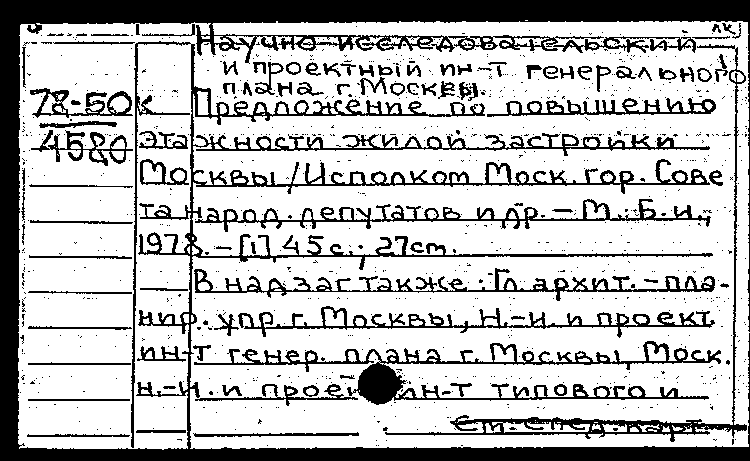 лк
Научно-исследовательский
и проектный ин-т генерального
плана г. Москвы.
78-50к Предложение по повышению
4580 этажности жилой застройки
Москвы/Исполком Моск. гор. Сове
та народ. депутатов и др. – М.: Б. и.,
1978. – [1], 45 с.; 27 см.
В надзаг также: Гл. архит.-пла-
нир. упр. г. Москвы, Н.-и. и проект.
ин-т генер. плана г. Москвы, Моск.
н.-и. и проек ин-т типового и
См. след. карт.